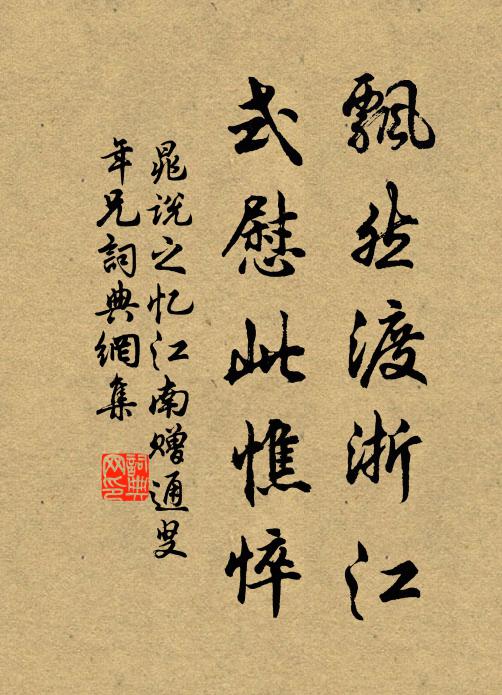 飄然渡浙江
式慰此憔悴
晁說之忆江南赠通叟
年兄詞典網集
詞典
网印